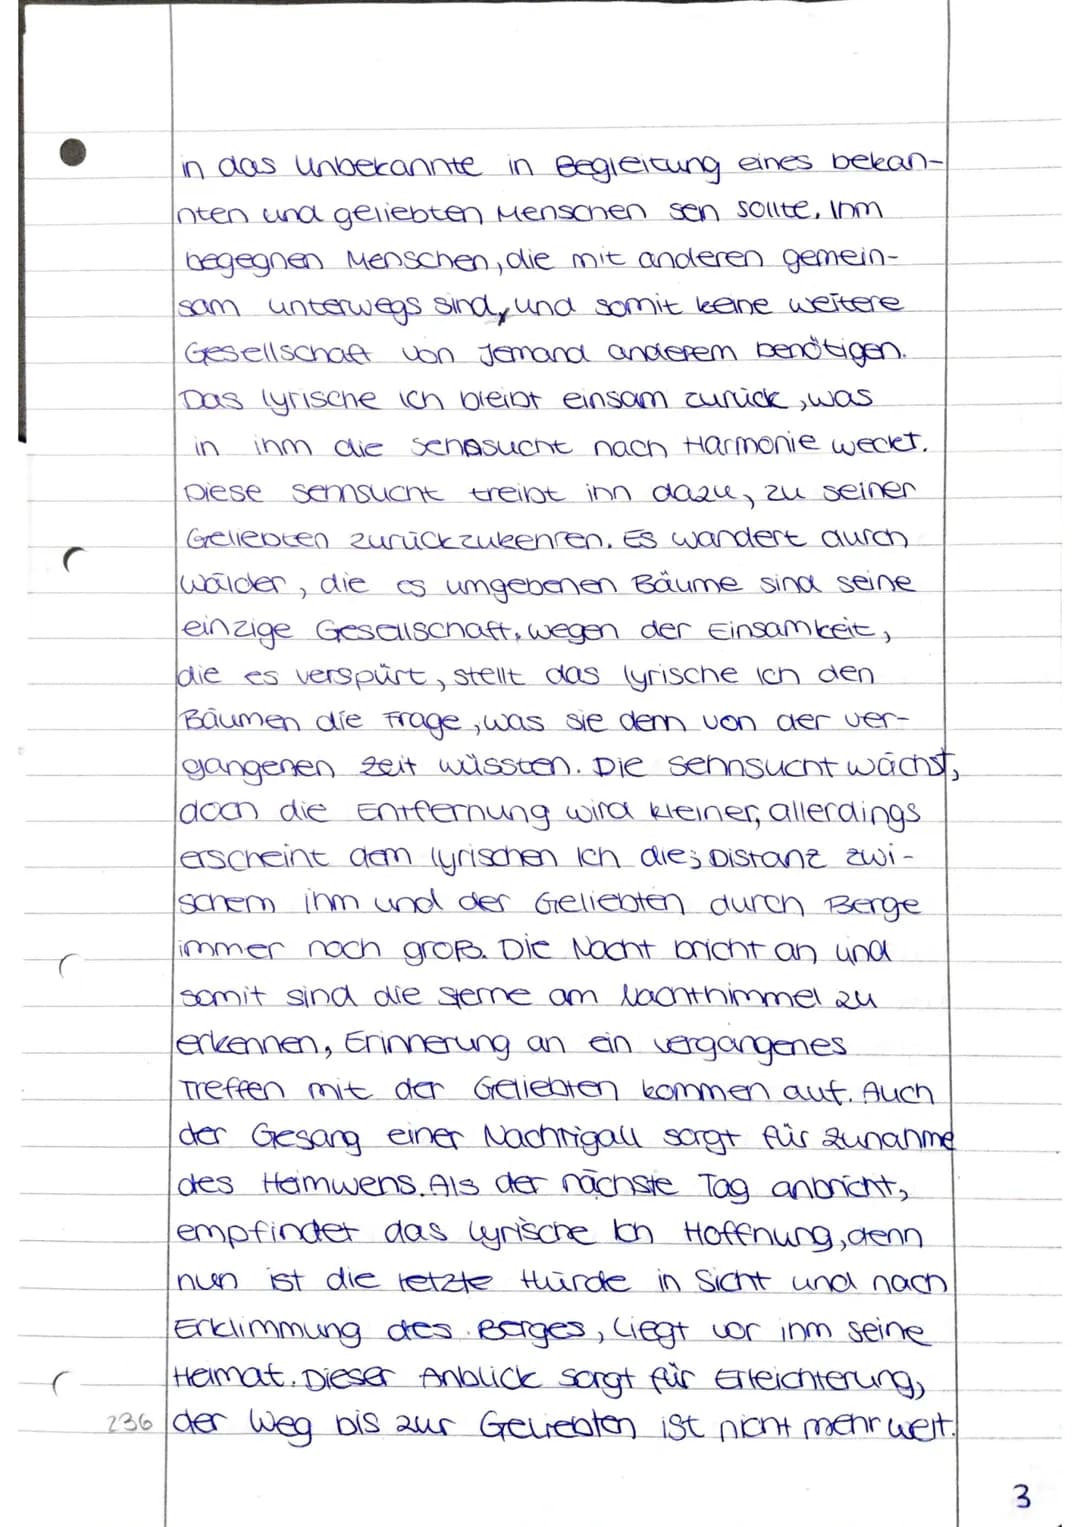 in das Unbekannte in Begleitung eines bekan-
nten und geliebten Menschen sen sollte. Ihm
begegnen Menschen, die mit anderen gemein-
sam unterwegs sind, und somit keine weitere
Gesellschaft von Jemand anderem benötigen.
Das lyrische Ich bleibt einsam zurück, was
in ihm die Sehnsucht nach Harmonie weckt.
Diese Sehnsucht treibt ihn dazu, zu seiner
Geliebten zurückzukehren. Es wandert durch
Wälder, die es umgebenen Bäume sind seine
einzige Gesellschaft, wegen der Einsamkeit,
die es verspürt, stellt das lyrische Ich den
Bäumen die Frage, was sie denn von der ver-
gangenen Zeit wüssten. Die Sehnsucht wächst,
doch die Entfernung wird kleiner, allerdings
erscheint dem lyrischen Ich die Distanz zwi-
schem ihm und der Geliebten durch Berge
immer noch groß. Die Nacht bricht an und
somit sind die Sterne am Nachthimmel zu
erkennen, Erinnerung an ein vergangenes
Treffen mit der Geliebten kommen auf. Auch
der Gesang einer Nachtigall sorgt für Zunahme
des Heimwehs. Als der nächste Tag anbricht,
empfindet das lyrische Ich Hoffnung, denn
nun ist die letzte Hürde in Sicht und nach
Erklimmung des Berges, liegt vor ihm seine
Heimat. Dieser Anblick sorgt für Erleichterung,
236 der Weg bis zur Geliebten ist nicht mehr weit.
3